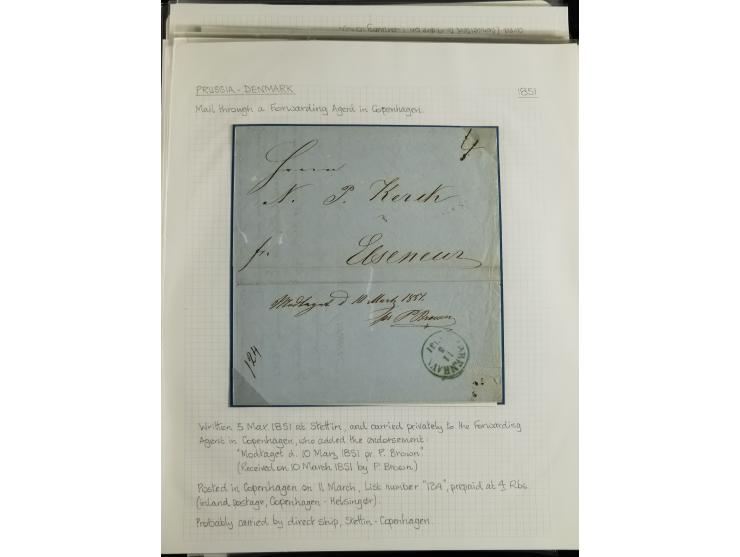 PRUSSIA - DENMARK
1851
Mail through a Forwarding Agent in Copenhagen.
4
Herrn
N. P. Kerck
Elseneur
fr.
Modtaget d 10 Marts 1851.
pr P. Brown
124
Written 5 Mar. 1851 at Stettin, and carried privately to the Forwarding
Agent in Copenhagen, who added the endorsement:
"Modtaget d. 10 Marz 1851 pr. P. Brown"
(Received on 10 March 1851 by P. Brown)
Posted in Copenhagen on 11 March, List number "124", prepaid at 4 Rbs.
(inland postage, Copenhagen - Helsingør).
Probably carried by direct ship, Stettin - Copenhagen.